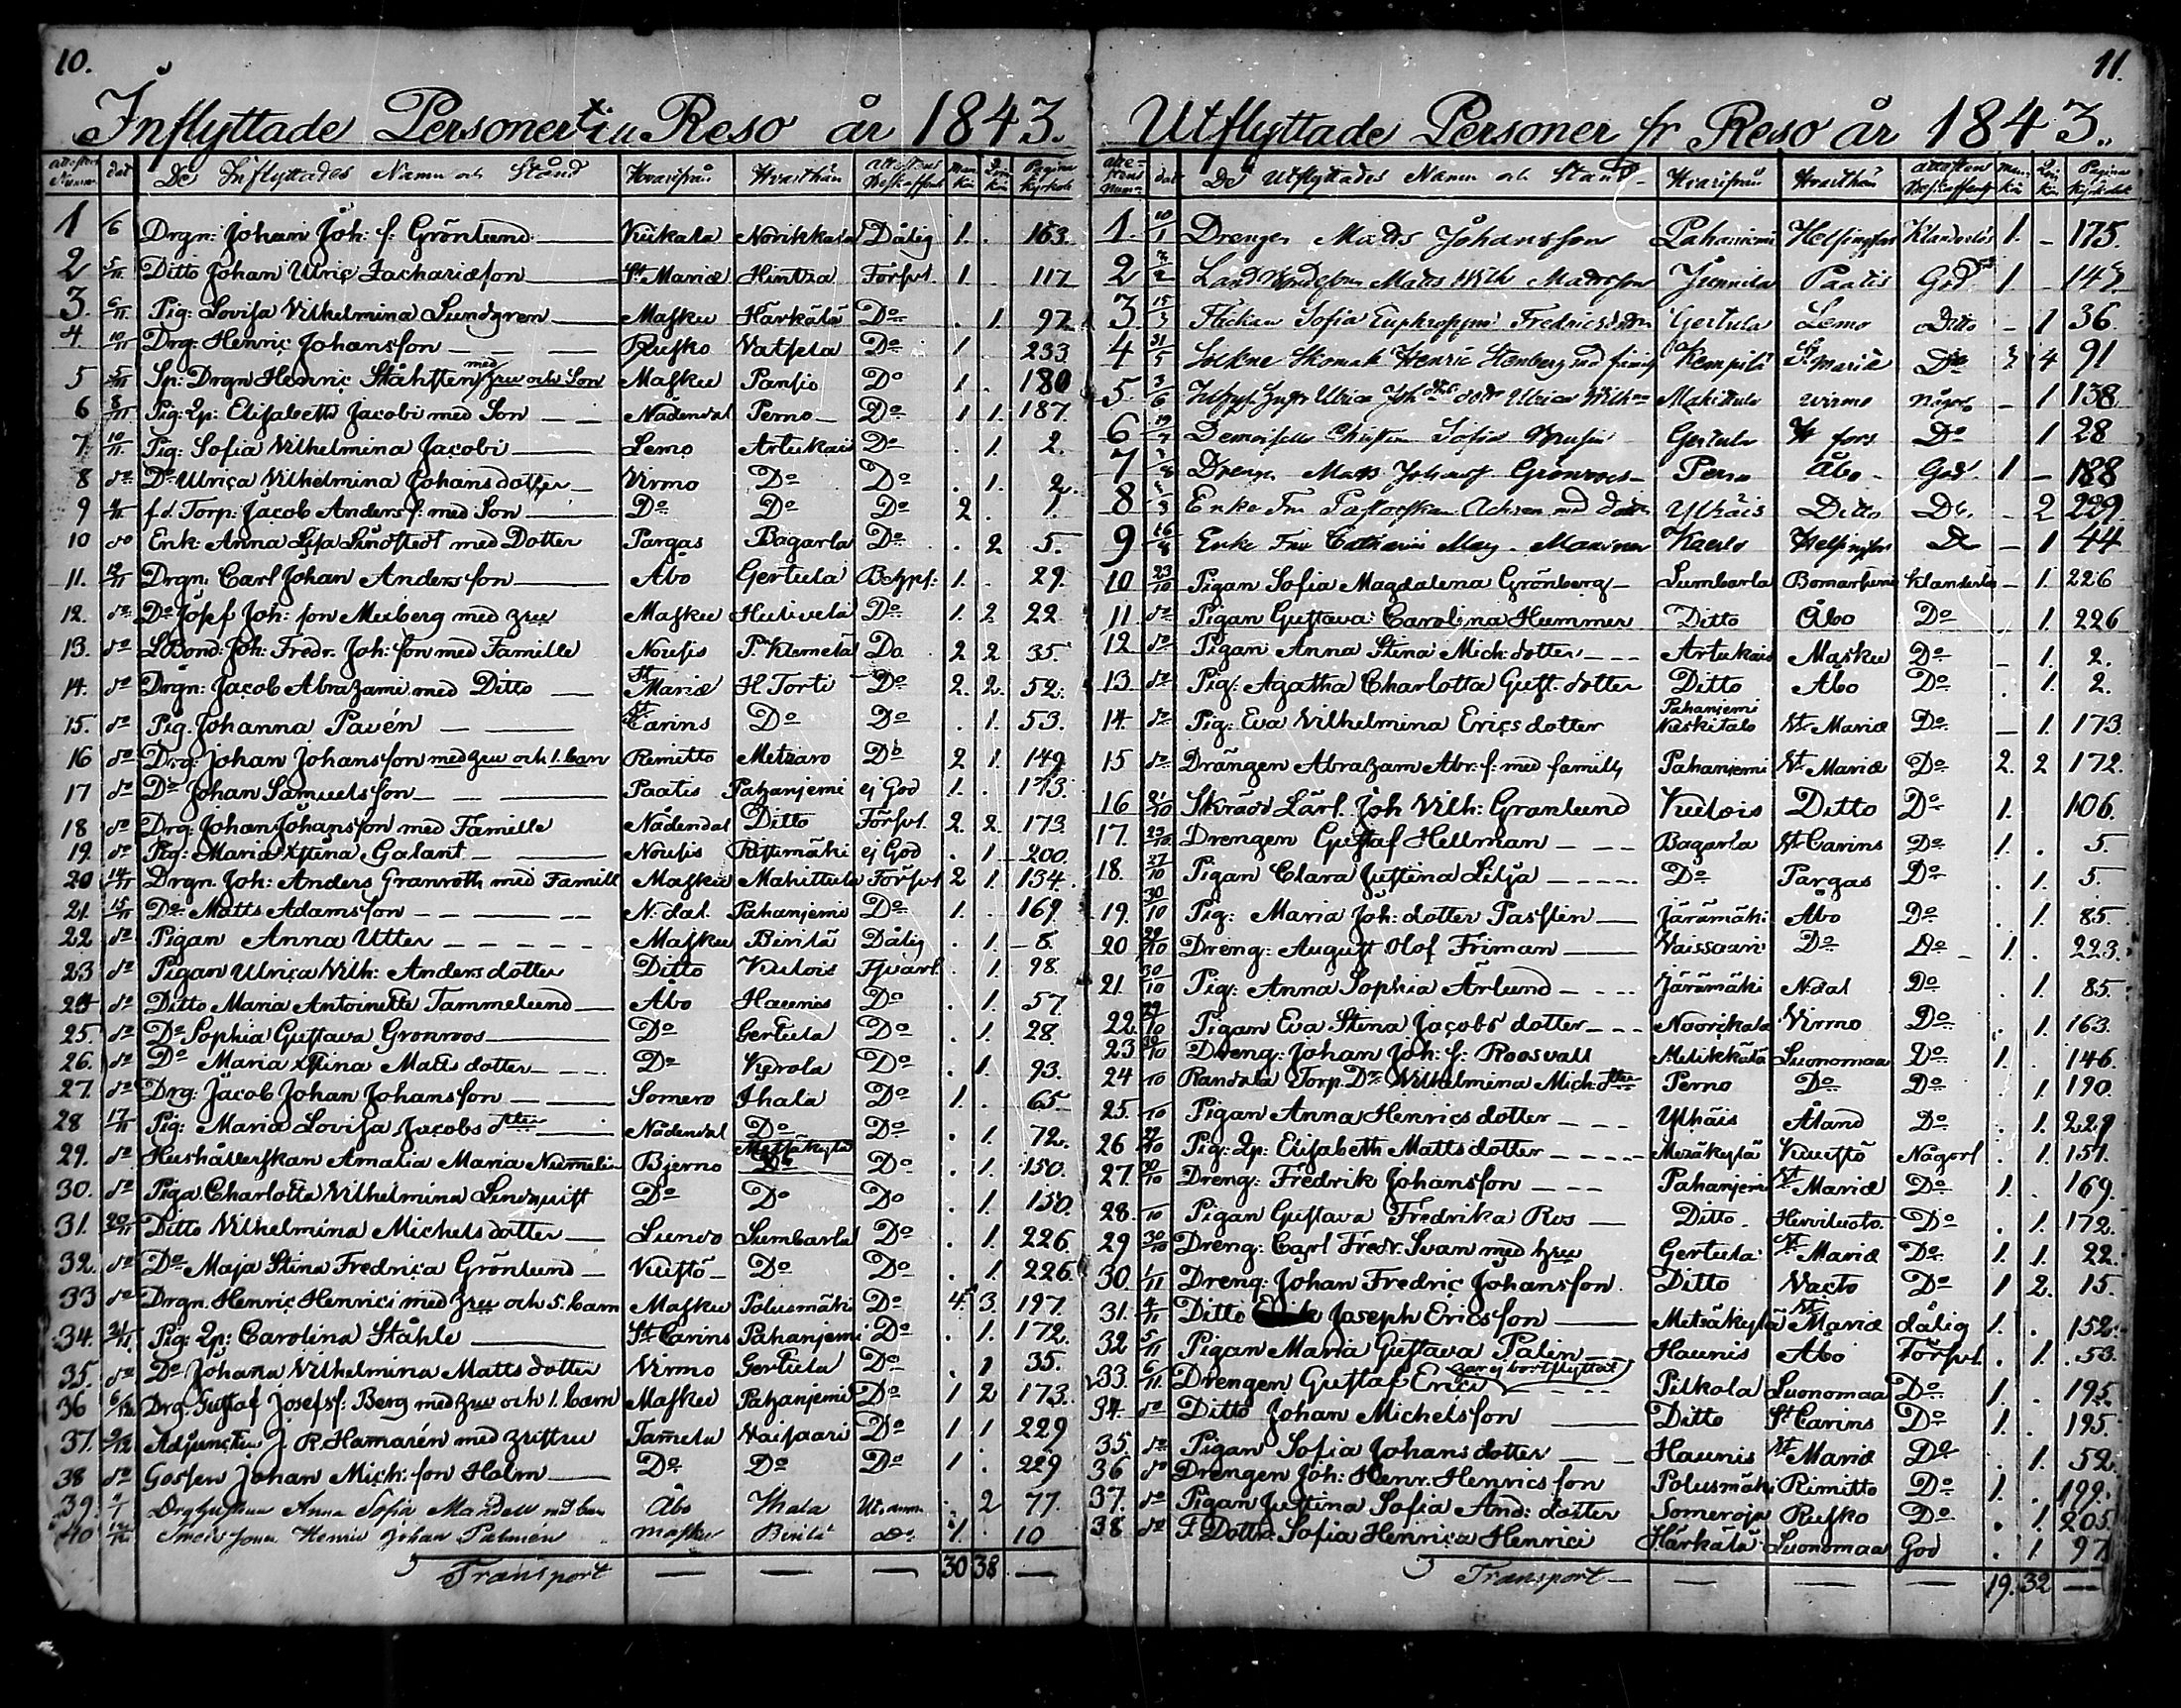 10.
Inflyttade Personer till Reso år 1843.
De Inflyttades Namn och Stånd Hvarifrån Hvarthän
1 6 Drgn: Johan Joh: f. Grönlund Kiikala Norikkala Dålig 1. 163.
2 5/11 Ditto Johan Ulriç Zachariæson St Mariæ Hintsa Förfvl. 1. 117
3. 6/11 Pig: Lovisa Vilhelmina Sundgren Masku Härkälä Do 1. 97.
4. 10/11 Drg: Henriç Johansson Rusko Vatsela Do 1 233
5 5/11 Sp: Drgn Henriç Ståhlsten med hru och Son Masku Pansio Do 1. 180
6 8/11 Pig: Qp: Elisabeth Jacobi med Son Nådendal Perno Do 1 1. 187.
7. 10/11 Pig: Sofia Vilhelmina Jaçobi Lemo Artukais Do 1. 2.
8 do Do Ulriça Vilhelmina Johansdotter Virmo Do Do 1. 2.
9 f.d. Torp: Jacob Anders f: med Son Do Do Do 2. 1.
10 do Enk: Anna Lisa Lindstedt med Dotter Pargas Bagarla Do 2 5.
11. 12/11 Drgn: Carl Johan Andersson Åbo Gertula 1. 29.
12. do Do Josef Joh: son Meiberg med hru Masku Huhvela Do 1. 2 22
13. do LBond: Joh: Fredr. Joh: son med Famille Nousis P. Klemelä Do 2 2 35.
14. do Drgn: Jaçob Abrahami med Ditto St Mariæ H. Torti Do 2. 2. 52.
15. do Pig. Johanna Pavén St Carins Do Do 1. 53.
16 do Drg: Johan Johansson med hru och 1. barn Rimitto Metsaro Do 2 1. 149
17 do Do Johan Samuelsson Paatis Pahanjemi ej God 1. 173.
18 do Drg: Johan Johansson med Famille Nådendal Ditto Förfvl. 2. 2. 173
19. do Pig: Maria Xstina Galant Nousis ej God 1 200.
20 14/11 Drgn. Joh: Anders Granroth med Famill Masku Mahittula Förfvl 2 1. 134.
21. 15/11 Do Matts Adamsson N:dal. Pahanjemi Do 1. 169
22 do Pigan Anna Utter Masku Birilä Dålig 1. 8.
23 do Pigan Ulriça Vilh: Andersdotter Ditto Kulois 1. 98.
24 do Ditto Maria Antoinette Tammelund Åbo Haunis Do 1. 57.
25. do Do Sophia Gustava Gronroos Do Gertula Do 1. 28.
26. do Do Maria Xstina Mattsdotter Do Kerola Do 1. 93.
27. do Drg: Jaçob Johan Johansson Somero Ihala Do 1. 65
28 17/11 Pig: Maria Lovisa Jaçobs dtter Nådendal Do Do 1. 72.
29. do Hushållerskan Amalia Maria Numelin Bjerno Metsäkylä Do Do 1. 150.
30. do Piga Charlotta Vilhelmina Lindquist Do Do Do 1. 150.
31. 20/11 Ditto Vilhelmina Michelsdotter Lundo Lumbarla Do 1. 226.
32. do Do Maja Stina Fredriça Grönlund Kustö Do Do 1. 226.
33 do Drgn. Henriç Henrici med hru och 5. barn Masku Polusmäki Do 4. 3. 197.
34. 21/11. Pig: Qp: Carolina Ståhle St Carins Pahanjemi Do 1. 172.
35. do Do Johana Vilhelmina Mattsdotter Virmo Gertula Do 1 35.
36 6/12 Drg. Gustaf Josefsf: Berg med hru och 1. barn Masku Pahanjemi Do 1 2 173.
37. 9/12 Adjuncten J. R. Hamarén med hustru Tamela Vaisaari Do 1 1 229
38 do Gossen Johan Mich: son Holm Do Do Do 1. 229
39. Anna Sofia Åbo Ihala 2 77.
40 Henric Johan Palmen Masku Birilä do 1. 10
Transport 30 38.
11.
Utflyttade Personer fr Reso år 1843.
De Utflyttades Namn och Stånd Hvarifrån Hvarthän
1. 10/1 Drengen Matts Johansson Pahaniemi Helsingfors 1. 175.
2 Matts Wilh Mattsson Junnila Paatis God 1 147
3. 15/3 Flickan Sofia Fredricsdotter Gertula Lemo Ditto 1 36.
4 31/5 Henric Stenberg med familj Kempilä St Mariæ Do 3 4 91
5. 3/6 Ulrica Makittula Wirmo 1 138
6 Demoiselle Sofia Gertula H fors Do 1 28
7 Dreng Matts Grönroos Perno Åbo God 1 188
8 Enke Fru med dotter Ylhäis Ditto Do. 2 229.
9 16/8 Enke Fru Catharin Kaerla Helsingfors Do 1 44
10 23/10 Pigan Sofia Magdalena Grönberg Lumbarla Bomarsund 1. 226
11 do Pigan Gustava Carolina Hummer Ditto Åbo Do 1. 226
12 do Pigan Anna Stina Mich:dotter Artukais Masku Do 1. 2.
13 do Pig: Agatha Charlotta Gust.dotter Ditto Åbo Do 1. 2.
14. do Pig: Eva Vilhelmina Eriçsdotter Pahanjemi Keskitalo St Mariæ Do 1. 173
15 do Drängen Abraham Abr: f: med familj Pahanjemi St Mariæ Do 2. 2 172.
16 21/10 Skrädd Lärl. Joh Vilh: Granlund Kulois Ditto Do 1. 106.
17. 23/10 Drengen Gustaf Hellman Bagarla St Carins Do 1. 5.
18. 27/10 Pigan Clara Justina Lilja Do Pargas Do 1. 5.
19. 30/10 Pig: Maria Joh:dotter Pasten Järämäki Åbo Do 1. 85.
20 29/10 Dreng: August Olof Friman Vaissaari Do Do 1. 223.
21. 30/10 Pig: Anna Sophia Ärlund Järämäki N:dal Do 1. 85.
22. 29/10 Pigan Eva Stina Jaçobsdotter Noorikala Virmo Do 1. 163.
23 30/10 Dreng: Johan Joh: f: Roosvall Melikkälä Luonomaa Do 1. 146.
24 10 Randala Torp. Do Vilhelmina Mich:dtter Perno Do Do 1. 190.
25. /10 Pigan Anna Henriçsdotter Ylhäis Åland Do 1. 229
26 29/10 Pig: Qp: Elisabeth Mattsdotter Mezäkylä Kuustö Någorl 1. 151.
27. 30/10 Dreng: Fredrik Johansson Pahanjemi St Mariæ Do 1. 169.
28. /10 Pigan Gustava Fredrika Ros Ditto Hirviluoto Do 1. 172.
29 30/10 Dreng: Carl Fredr. Svan med hru Gertula St Mariæ Do 1. 1. 22.
30. 1/11 Dreng: Johan Fredriç Johansson Ditto Vacto Do 1 2. 15.
31. 4/11 Ditto Joseph Ericsson Metsäkylä St Mariæ dålig 1. 152.
32 5/11 Pigan Maria Gustava Palin Haunis Åbo Förfvl. 1. 53.
33. 6/11. Drengen Gustaf Erici har ej bortflyttat Pilkala Luonomaa Do 1. 195.
34. do Ditto Johan Michelsson Ditto St Carins Do 1. 195.
35. do Pigan Sofia Johansdotter Haunis St Mariæ Do 1. 52.
36 do Drengen Joh: Henr. Henricsson Polusmäki Rimitto Do 1. 199.
37. do Pigan Justina Sofia And: dotter Someroja Rusko Do 1. 205.
38 do F. Dottr. Sofia Henriça Henrici Härkälä Luonomaa God 1. 97
Transport 19. 32